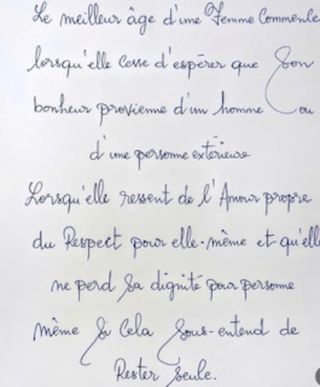 Le meilleur âge d'une Femme Commence
lorsqu'elle Cesse d'espérer que Son
bonheur provienne d'un homme ou
d'une personne extérieure
Lorsqu'elle ressent de l'Amour propre
du Respect pour elle-même et qu'elle
ne perd Sa dignité pour personne
même Si Cela Sous-entend de
Rester Seule.